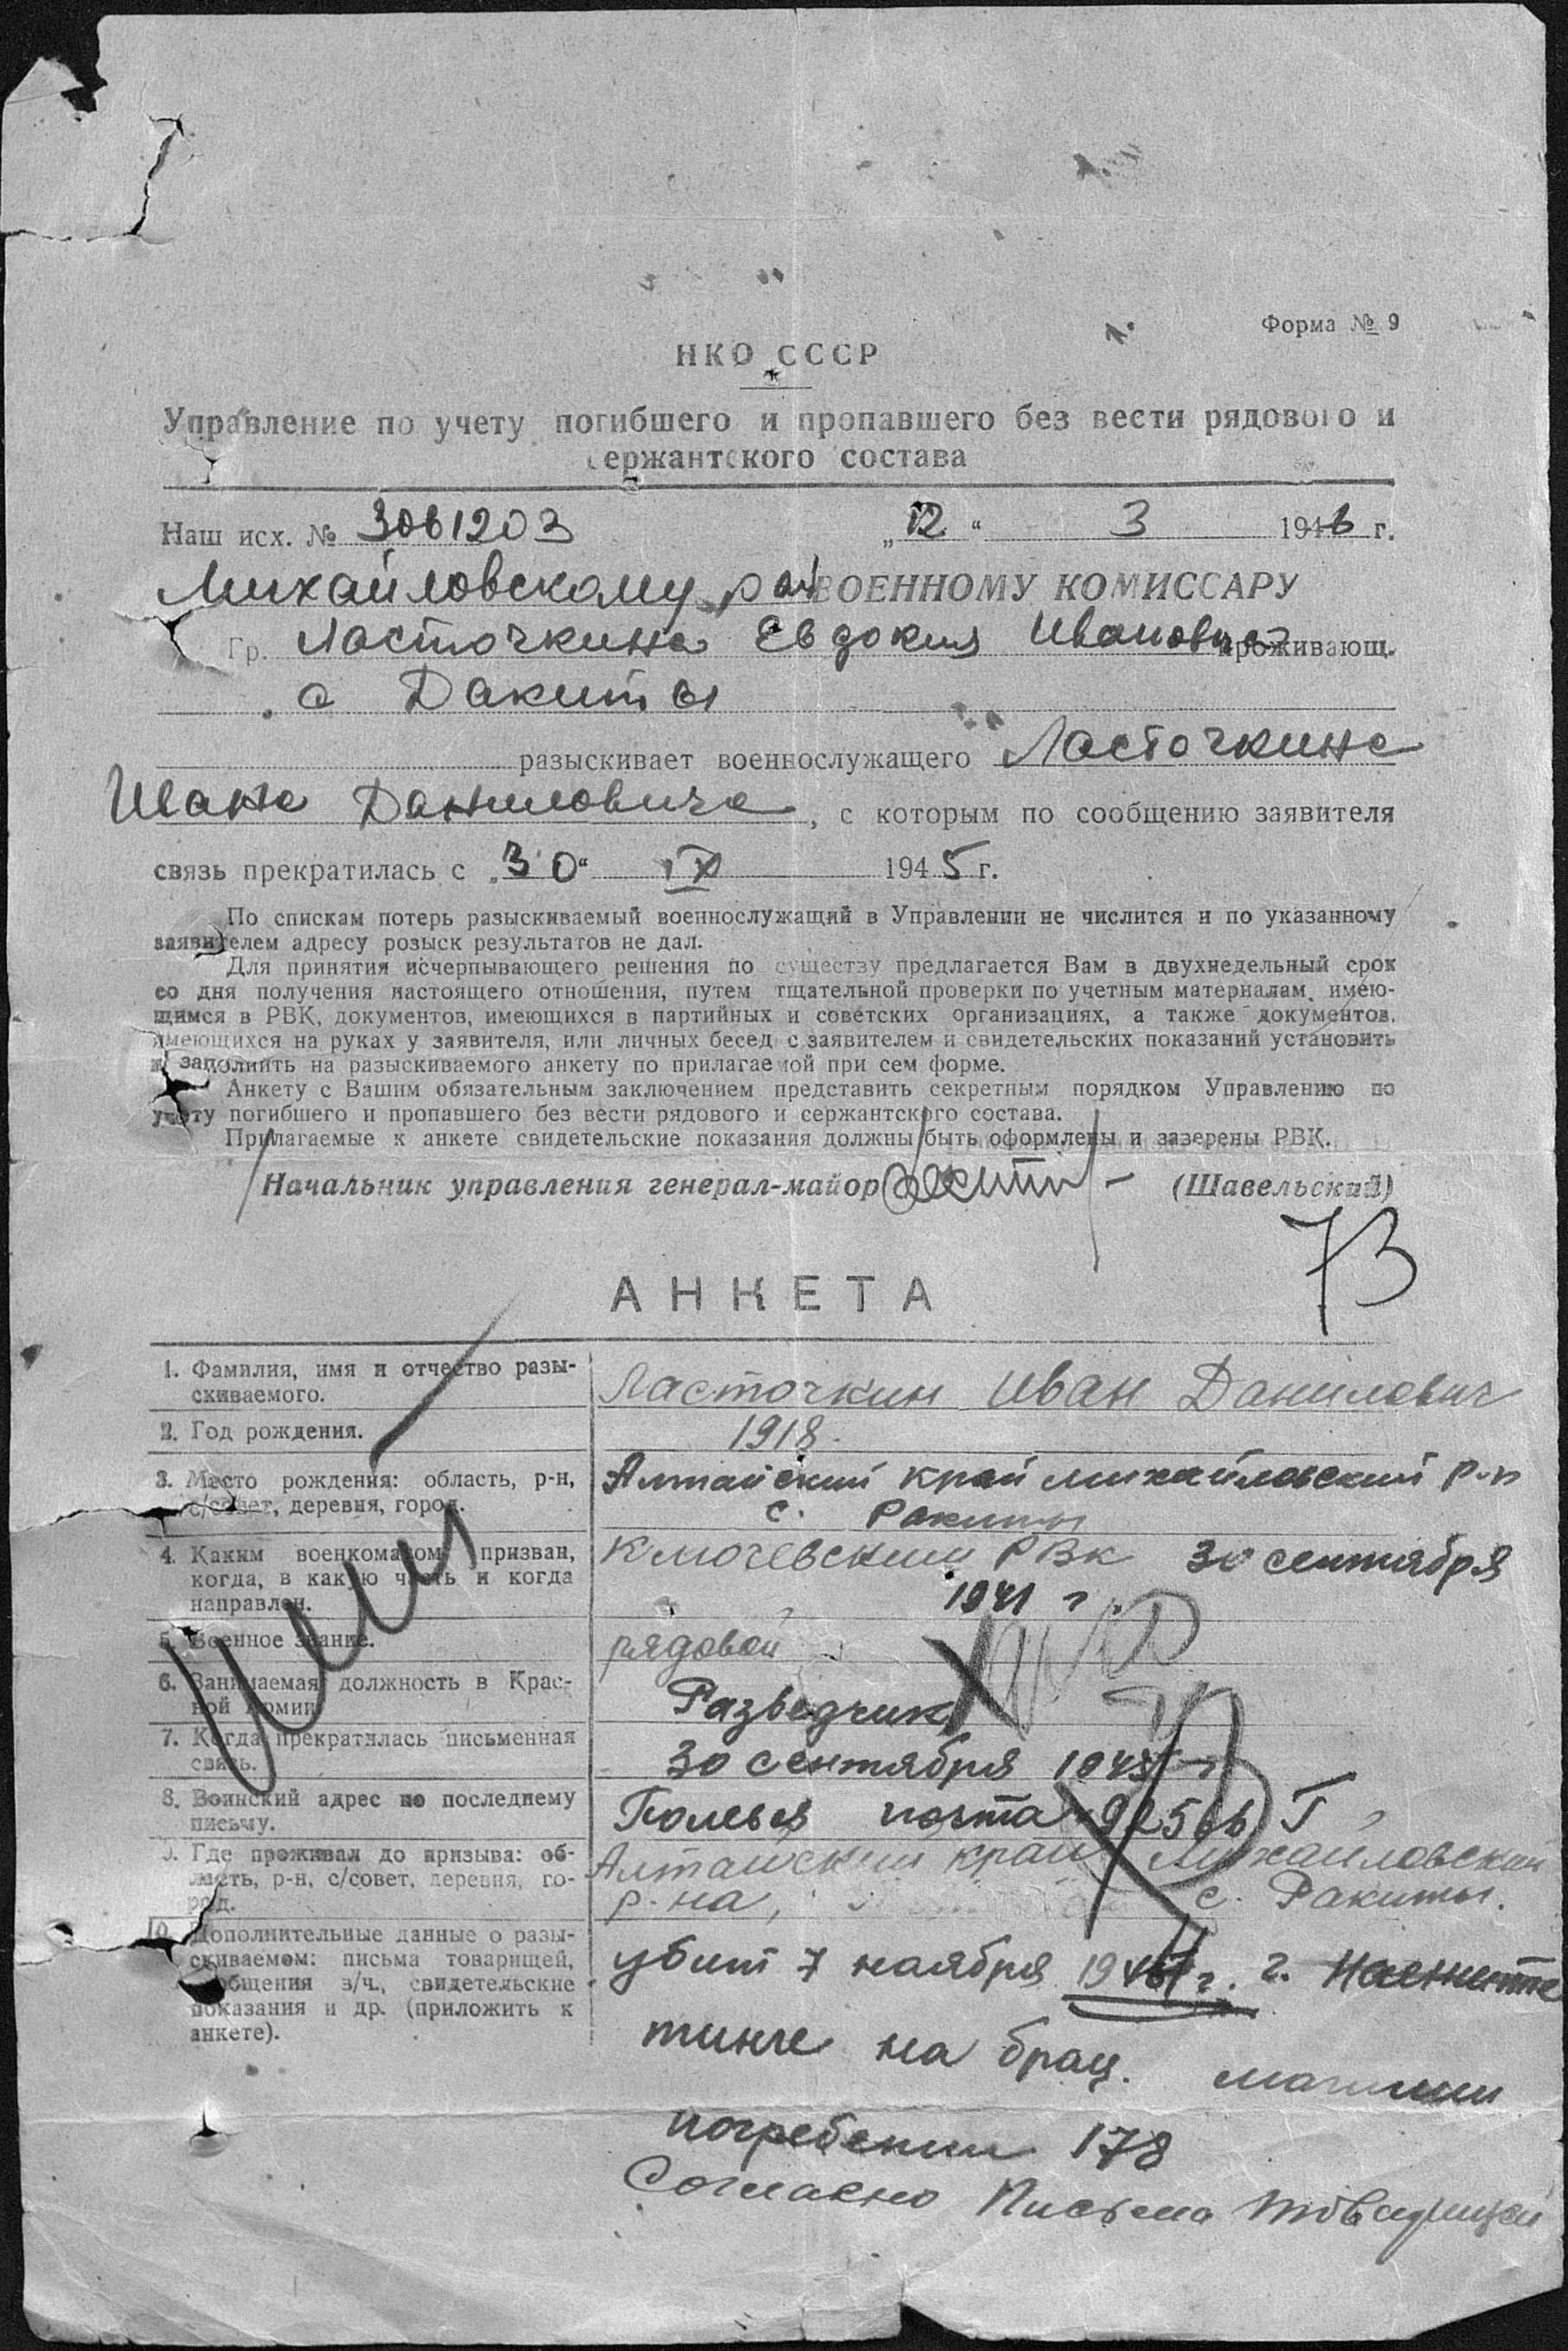 Форма № 9
НКО СССР
Управление по учету погибшего и пропавшего без вести рядового и
сержантского состава
Наш исх. № 3061203 „12“ 3 1946 г.
Михайловскому рай ВОЕННОМУ КОМИССАРУ
Гр. Ласточкина Евдокия Ивановна проживающ.
с Ракиты
разыскивает военнослужащего Ласточкина
Ивана Даниловича, с которым по сообщению заявителя
связь прекратилась с „30“ IX 1945 г.
По спискам потерь разыскиваемый военнослужащий в Управлении не числится и по указанному
заявителем адресу розыск результатов не дал.
Для принятия исчерпывающего решения по существу предлагается Вам в двухнедельный срок
со дня получения настоящего отношения, путем тщательной проверки по учетным материалам, имею-
щимся в РВК, документов, имеющихся в партийных и советских организациях, а также документов,
имеющихся на руках у заявителя, или личных бесед с заявителем и свидетельских показаний установить
и заполнить на разыскиваемого анкету по прилагаемой при сем форме.
Анкету с Вашим обязательным заключением представить секретным порядком Управлению по
учету погибшего и пропавшего без вести рядового и сержантского состава.
Прилагаемые к анкете свидетельские показания должны быть оформлены и заверены РВК.
Начальник управления генерал-майор (Шавельский)
73
АНКЕТА
1. Фамилия, имя и отчество разы-
скиваемого.
Ласточкин Иван Данилович
2. Год рождения.
1918.
3. Место рождения: область, р-н,
с/совет, деревня, город.
Алтайский край михайловский р-н
с. Ракиты
4. Каким военкоматом призван,
когда, в какую часть и когда
направлен.
Ключевский РВК 30 сентября
1941 г.
5. Военное звание.
рядовой
6. Занимаемая должность в Крас-
ной Армии
Разведчик
7. Когда прекратилась письменная
связь.
30 сентября 1945 г
8. Воинский адрес по последнему
письму.
Полевая почта 92566 Г
9. Где проживал до призыва: об-
ласть, р-н, с/совет, деревня, го-
род.
Алтайский край Михайловский
р-на, с. Ракиты.
10. Дополнительные данные о разы-
скиваемом: письма товарищей,
сообщения в/ч., свидетельские
показания и др. (приложить к
анкете).
убит 7 ноября г.
на брац. могили
погребении 178
Согласно Письма товарищей